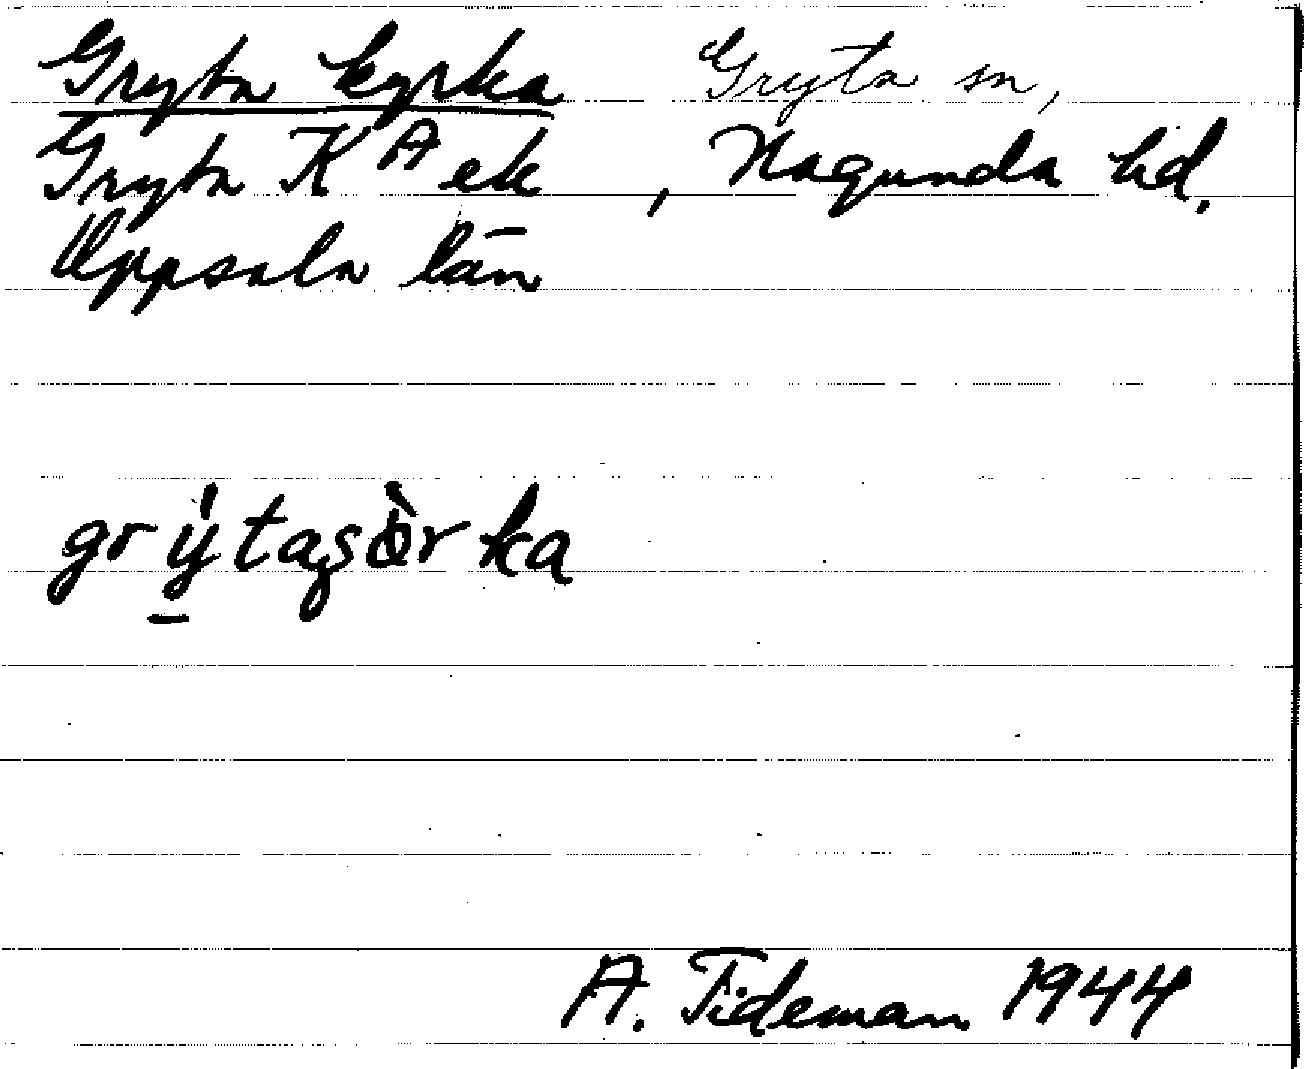 Gryta kyrka Gryta sn,
Gryta K^A ek , Hagunda hd.
Uppsala län
grýtaʂὸrka
A. Tideman 1944